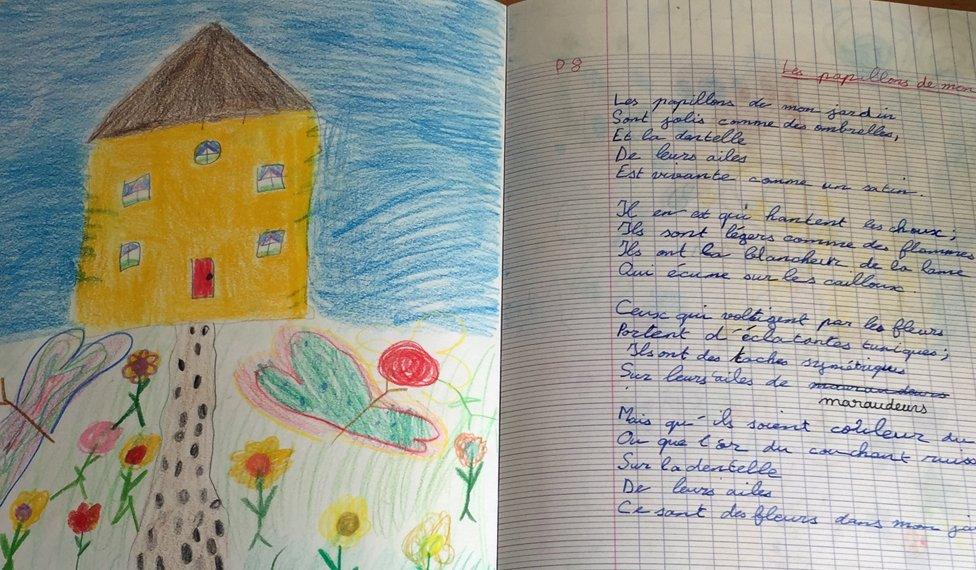 P 8
Les papillons de mon
Les papillons de mon jardin
Sont jolis comme des ombrelles,
Et la dentelle
De leurs ailes
Est vivante comme un satin.
Il en est qui hantent les choux ;
Ils sont légers comme des flammes
Ils ont la blancheur de la lame
Qui écume sur les cailloux.
Ceux qui voltigent par les fleurs
Portent d'éclatantes tuniques ;
Ils ont des taches symétriques
Sur leurs ailes de
maraudeurs
Mais qu'ils soient couleur du
Ou que l'or du couchant ruis
Sur la dentelle
De leurs ailes
Ce sont des fleurs dans mon ja